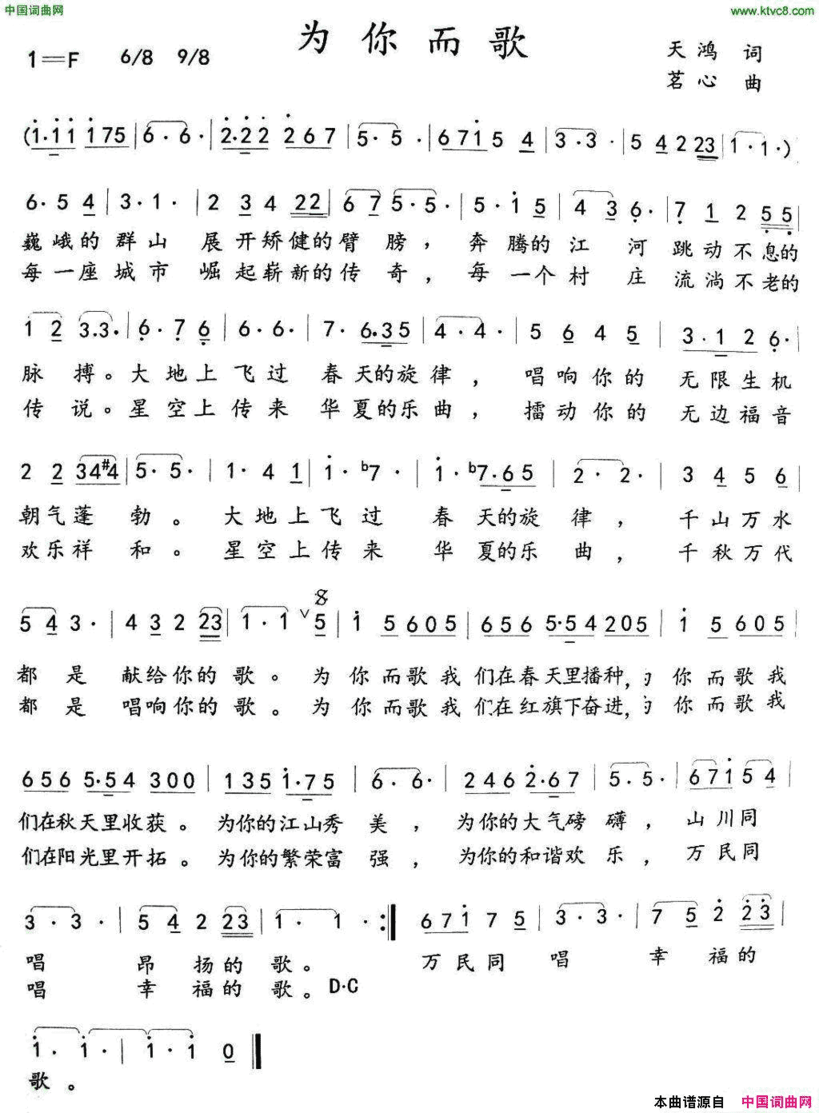 中国词曲网
www.ktvc8.com
为你而歌
1=F 6/8 9/8
天鸿 词
茗心 曲
(1·11 175|6·6·|2·22 267|5·5·|67154|3·3·|542223|1·1·)
6·54|3·1·|234 22|67 5·5·|5·15|43 6·|7 1 2 55|
巍峨的群山 展开矫健的臂膀，奔腾的江河跳动不息的
每一座城市 崛起崭新的传奇，每一个村庄流淌不老的
12 3·3·|6·76|6·6·|7· 6·35|4·4·|5645|3·126·|
脉搏。大地上飞过 春天的旋律，唱响你的 无限生机
传说。星空上传来 华夏的乐曲，擂动你的 无边福音
22 34#4|5·5·|1·41|1·b7·|1·b7·65|2·2·|3456|
朝气蓬勃。大地上飞过 春天的旋律，千山万水
欢乐祥和。星空上传来 华夏的乐曲，千秋万代
54 3·|432 23|1·1 5|1 5605|656 5·54 205|1 5605|
都是 献给你的歌。为你而歌我们在春天里播种，为你而歌我
都是 唱响你的歌。为你而歌我们在红旗下奋进，为你而歌我
656 5·54 300|135 1·75|6·6·|246 2·67|5·5·|67154|
们在秋天里收获。为你的江山秀美，为你的大气磅礴，山川同
们在阳光里开拓。为你的繁荣富强，为你的和谐欢乐，万民同
3·3·|542 23|1·1·:| 67175|3·3·|75 2 23|
唱 昂扬的歌。 万民同唱 幸福的
唱 幸福的歌。D·C
1·1·|1·10||
歌。
本曲谱源自 中国词曲网